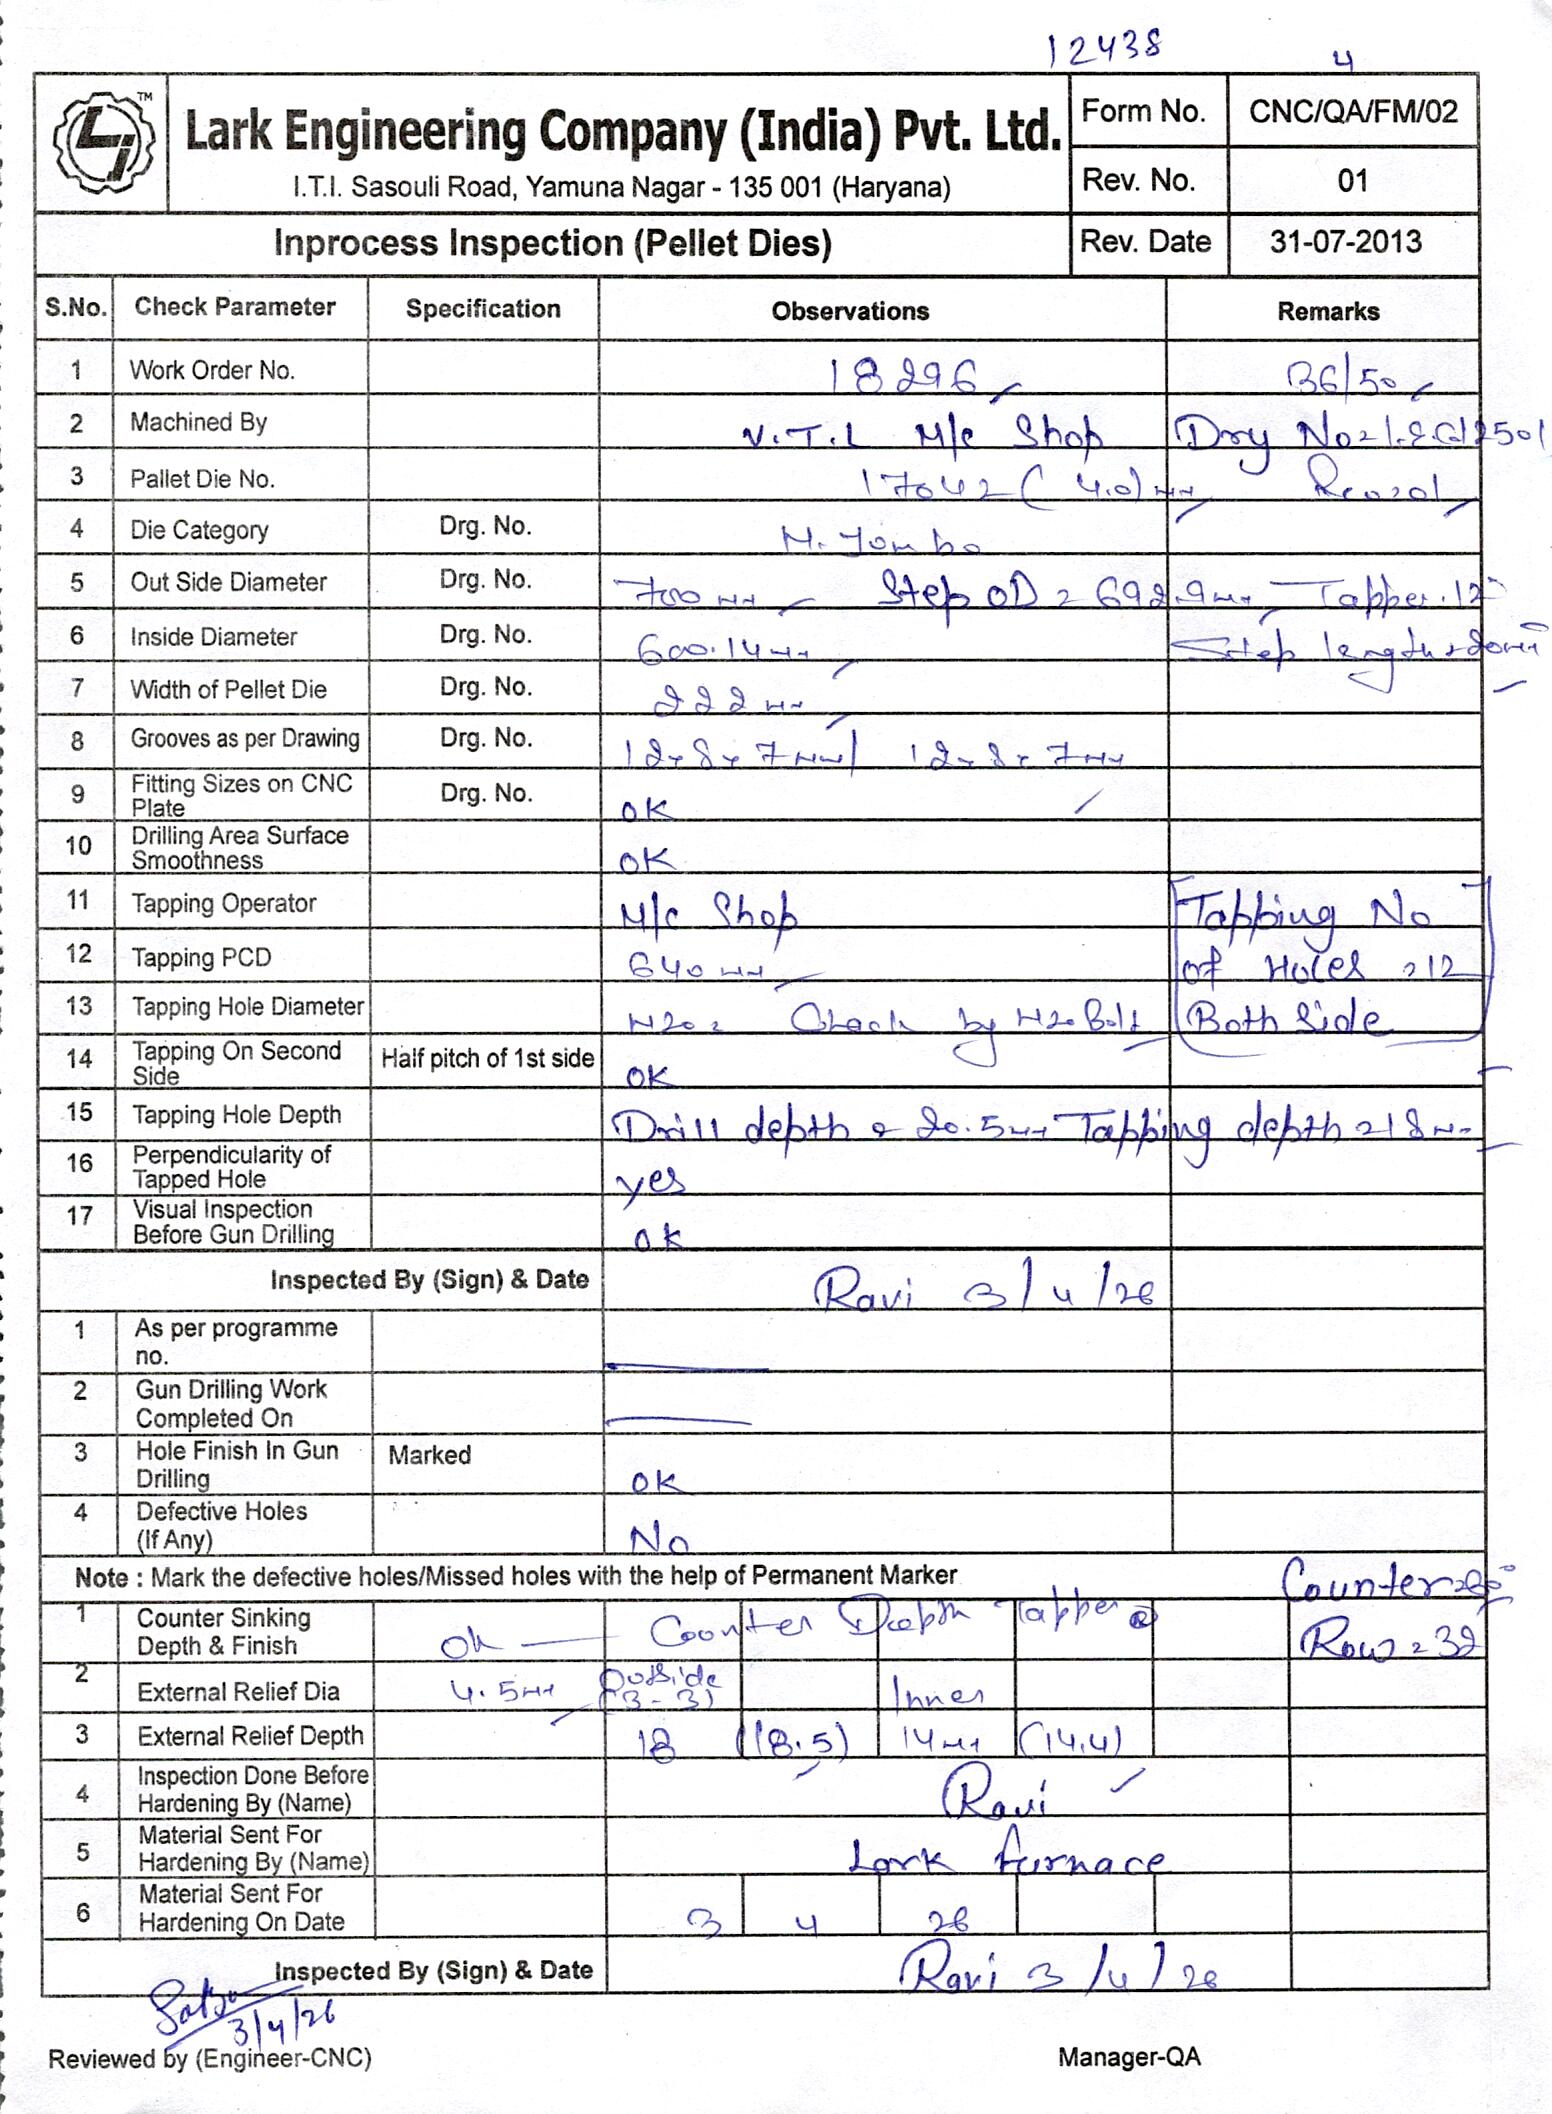 12438 4
Lark Engineering Company (India) Pvt. Ltd.
TM
I.T.I. Sasouli Road, Yamuna Nagar - 135 001 (Haryana)
Form No. CNC/QA/FM/02
Rev. No. 01
Inprocess Inspection (Pellet Dies) Rev. Date 31-07-2013
S.No. Check Parameter Specification Observations Remarks
1 Work Order No. 18296 36/50
2 Machined By V.T.L M/c Shop
3 Pallet Die No. 17042 (4.0) mm
4 Die Category Drg. No.
5 Out Side Diameter Drg. No. 700 mm Step OD = 692.9mm Tapper.12°
6 Inside Diameter Drg. No. 600.14mm Step length = 20mm
7 Width of Pellet Die Drg. No. 222 mm
8 Grooves as per Drawing Drg. No. 12x8x7mm/ 12x8x7mm
9 Fitting Sizes on CNC Plate Drg. No. OK
10 Drilling Area Surface Smoothness OK
11 Tapping Operator M/c Shop Tapping No
12 Tapping PCD 640 mm of Holes = 12
13 Tapping Hole Diameter M20 = Check by M20 Bolt Both Side
14 Tapping On Second Side Half pitch of 1st side OK
15 Tapping Hole Depth Drill depth = 20.5mm Tapping depth = 18mm
16 Perpendicularity of Tapped Hole yes
17 Visual Inspection Before Gun Drilling OK
Inspected By (Sign) & Date Ravi 3/4/26
1 As per programme no.
2 Gun Drilling Work Completed On
3 Hole Finish In Gun Drilling Marked OK
4 Defective Holes (If Any) No
Note : Mark the defective holes/Missed holes with the help of Permanent Marker Counter = 60°
1 Counter Sinking Depth & Finish OK Counter Depth Tapper Row = 32
2 External Relief Dia 4.5mm Outside (3-3) Inner
3 External Relief Depth 18 (18.5) 14mm (14.4)
4 Inspection Done Before Hardening By (Name) Ravi
5 Material Sent For Hardening By (Name) Lark furnace
6 Material Sent For Hardening On Date 3 4 26
Inspected By (Sign) & Date Ravi 3/4/26
3/4/26
Reviewed by (Engineer-CNC) Manager-QA